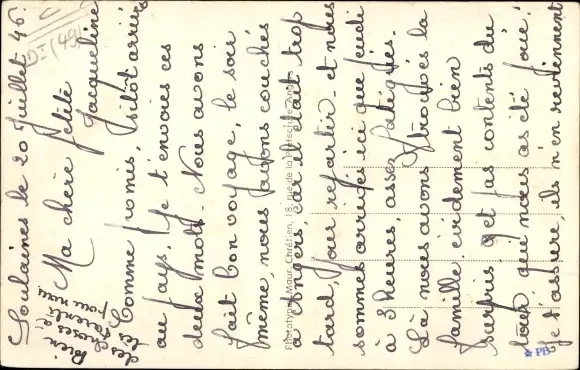 Soulaines le 20 Juillet 46.
Ma chère petite
Jacqueline
Comme promis, sitôt arrivés
au pays, je t'envoies ces
deux mots. Nous avons
fait bon voyage, le soir
même, nous fûmes couchés
à Angers car il était trop
tard, pour repartir et nous
sommes arrivés ici que jeudi
à 3 heures, assez fatigués.
Là nous avons trouvés la
famille évidement bien
surpris, et pas contents du
tout que nous as été joué!
je t'assure, ils n'en reviennent
Bien
des choses à
tes parents
pour nous.
Phototypie Maur. Chrétien, 18, rue de la Préfecture - Angers
DI (49)
★ PB